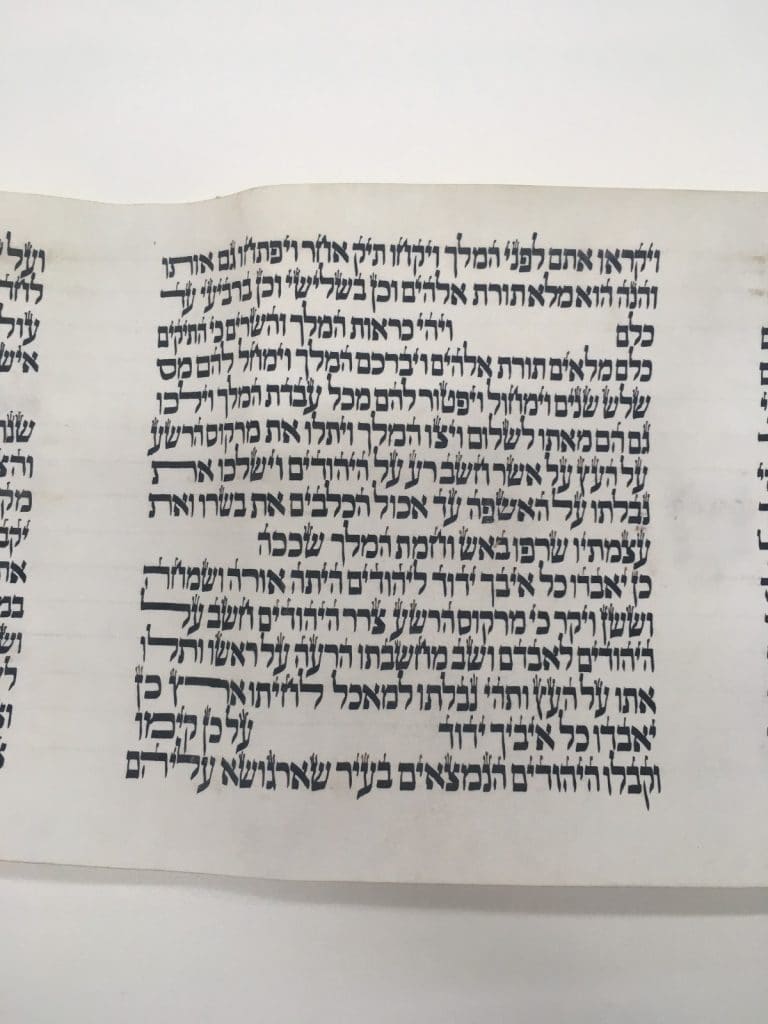 ויקראו אתם לפני המלך ויקחו תיק אחר ויפתחו גם אותו
והנה הוא מלא תורת אלהים וכן בשלישי וכן ברביעי עד
כלם ויהי כראות המלך והשרים כי התיקים
כלם מלאים תורת אלהים ויברכם המלך וימחל להם מס
שלש שנים וימחול ויפטור להם מכל עבדת המלך וילכו
גם הם מאתו לשלום ויצו המלך ויתלו את מרקוס הרשע
על העץ על אשר חשב רע על היהודים וישלכו את
נבלתו על האשפה עד אכול הכלבים את בשרו ואת
עצמתיו שרפו באש וחמת המלך שככה
כן יאבדו כל איבך ידוד ליהודים היתה אורה ושמחה
וששן ויקר כי מרקוס הרשע צרר היהודים חשב על
היהודים לאבדם ושב מחשבתו הרעה על ראשו ותלו
אתו על העץ ותהי נבלתו למאכל לחיתו ארץ כן
יאבדו כל איביך ידוד על כן קימו
וקבלו היהודים הנמצאים בעיר שארגושא עליהם
ועל
איש